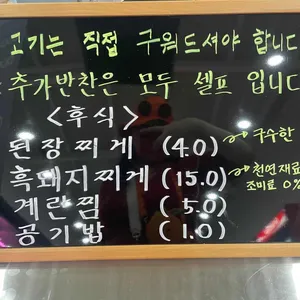 고기는 직접 구워드셔야 합니다
추가반찬은 모두 셀프 입니다
<후식>
된장찌게 (4.0) 구수한
흑돼지찌게 (15.0) 천연재료
조미료 0%
계란찜 (5.0)
공기밥 (1.0)